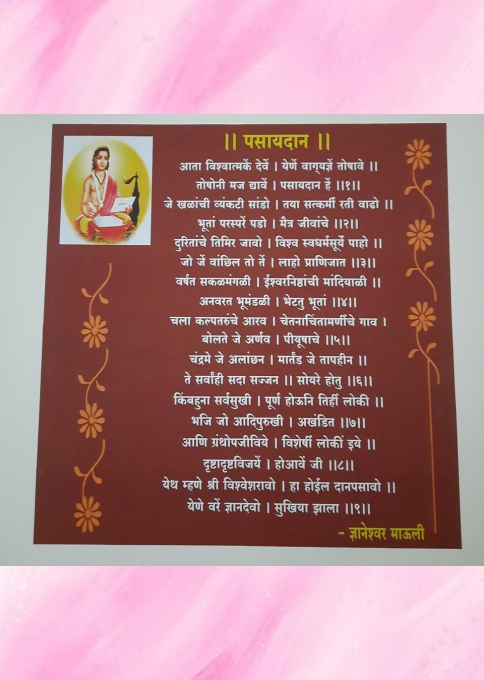 ।। पसायदान ।।
आता विश्वात्मकें देवें । येणें वाग्यज्ञें तोषावे ।।
तोषोनी मज द्यावें । पसायदान हें ।।१।।
जे खळांची व्यंकटी सांडो । तया सत्कर्मी रती वाढो ।
भूतां परस्परें पडो । मैत्र जीवांचे ।।२।।
दुरितांचे तिमिर जावो । विश्व स्वधर्मसूर्ये पाहो ।
जो जें वांछिल तो तें । लाहो प्राणिजात ।।३।।
वर्षत सकळमंगळी । ईश्वरनिष्ठांची मांदियाळी ।
अनवरत भूमंडळी । भेटतु भूतां ।।४।।
चला कल्पतरुंचे आरव । चेतनाचिंतामणींचे गाव ।
बोलते जे अर्णव । पीयूषाचे ।।५।।
चंद्रमे जे अलांछन । मार्तंड जे तापहीन ।।
ते सर्वांही सदा सज्जन ।। सोयरे होतु ।।६।।
किंबहुना सर्वसुखी । पूर्ण होऊनि तिहीं लोकी ।।
भजि जो आदिपुरुखी । अखंडित ।।७।।
आणि ग्रंथोपजीविये । विशेषीं लोकीं इये ।।
दृष्टादृष्टविजयें । होआवें जी ।।८।।
येथ म्हणे श्री विश्वेशरावो । हा होईल दानपसावो ।।
येणे वरें ज्ञानदेवो । सुखिया झाला ।।९।।
- ज्ञानेश्वर माऊली